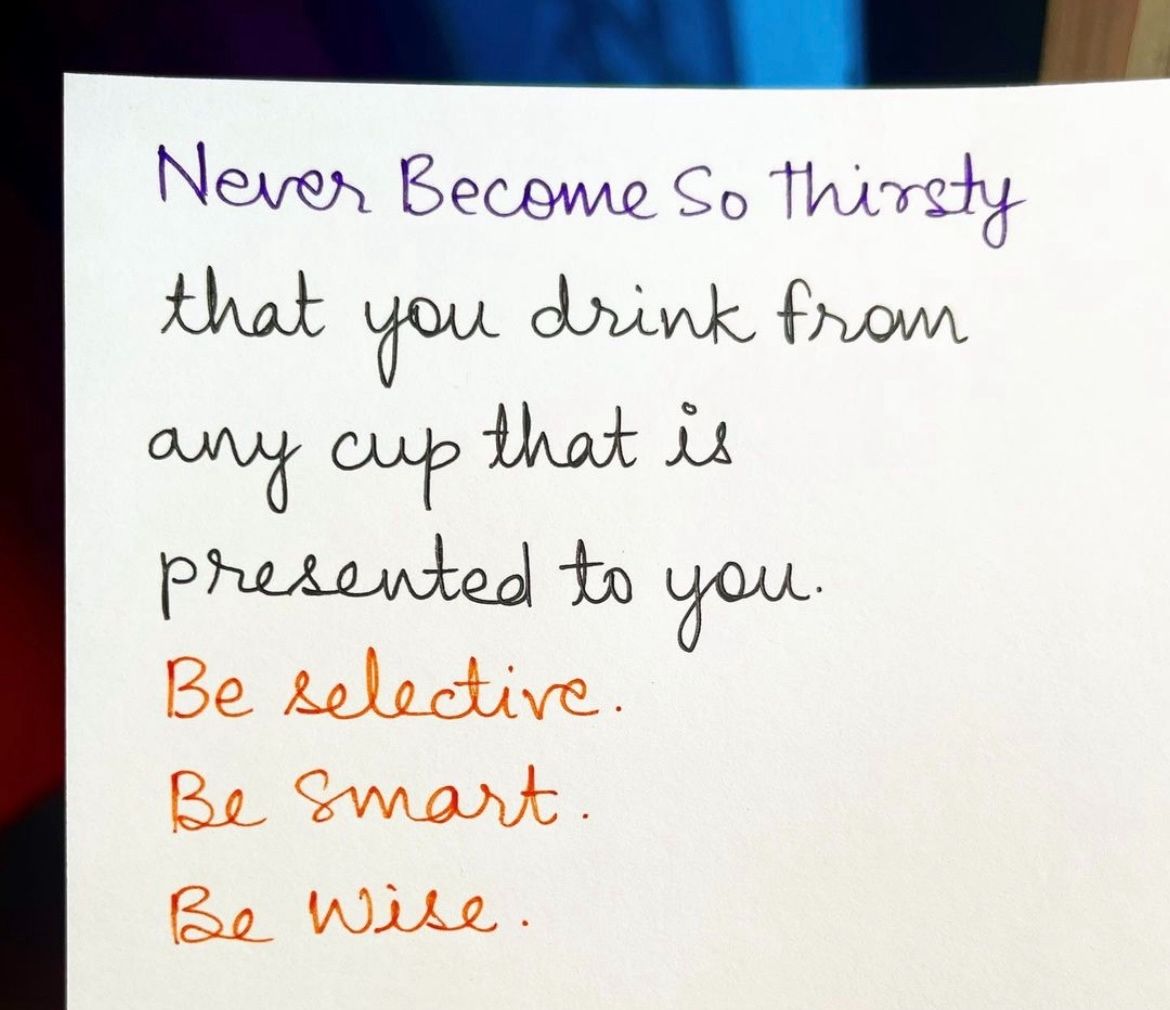 Never Become So Thirsty
that you drink from
any cup that is
presented to you.
Be selective.
Be Smart.
Be Wise.